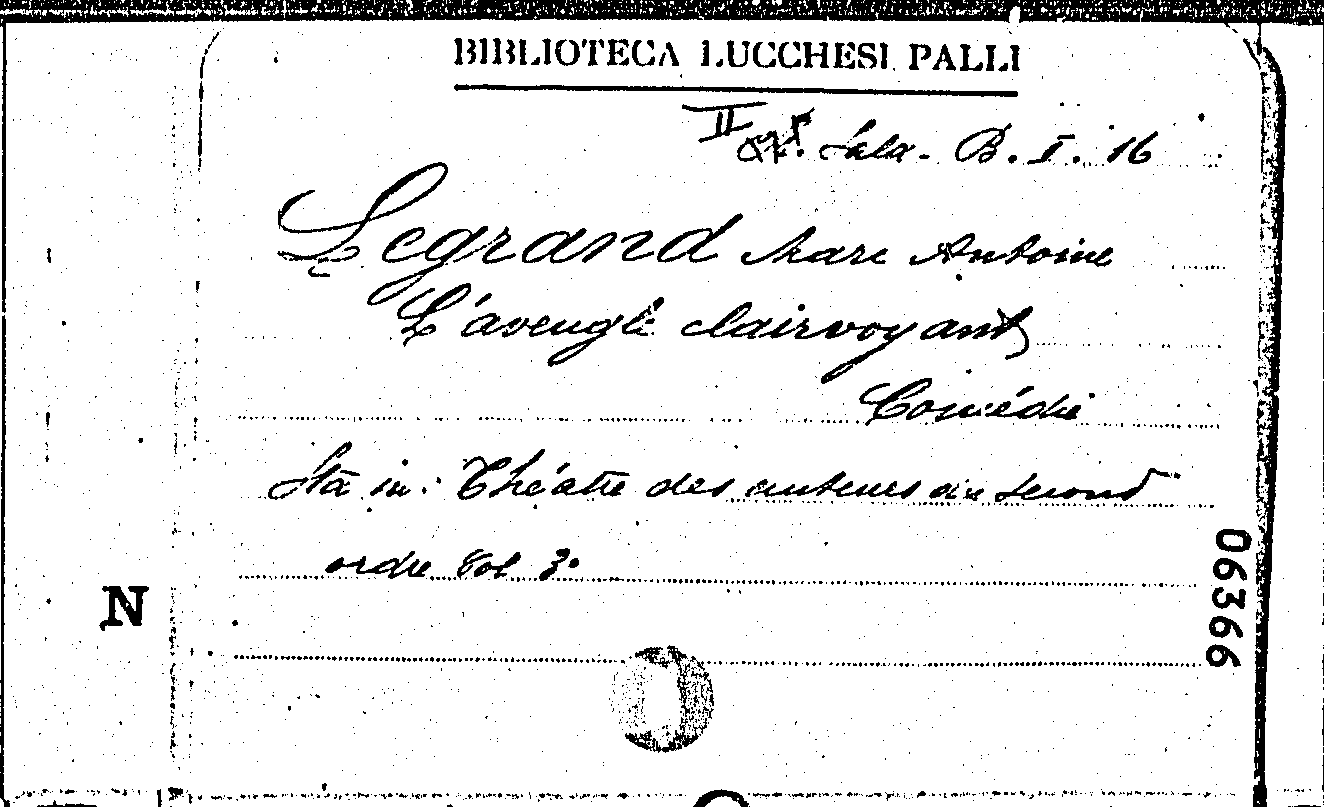 BIBLIOTECA LUCCHESI PALLI
II Sala. B. I. 16
Legrand Marc Antoine
L'aveugle clairvoyant
Comédie
Sta in: Théatre des auteurs du second
ordre Vol 3º
N
06366